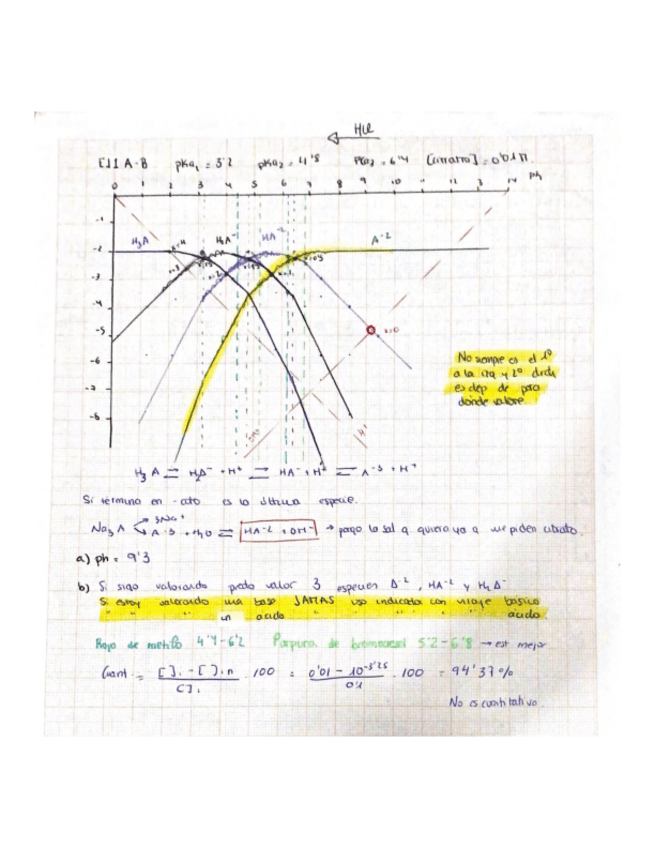 HCl
EJ1 A-B pKa₁ = 3'2 pKa₂ = 4'8 pKa₃ = 6'4 [citrato] = 0'01M.
0 1 2 3 4 5 6 7 8 9 10 11 12 13 14 pH
-1
-2
-3
-4
-5
-6
-7
-8
H₃A H₂A⁻ HA⁻² A⁻²
x=0
OH⁻
H⁺
No siempre es el 1º
a la izq y 2º drch
es dep de
donde valore
H₃A ⇌ H₂A⁻ + H⁺ ⇌ HA⁻ + H⁺ ⇌ A⁻³ + H⁺
Si termina en -ato es la última especie.
Na₃A 3Na⁺
A⁻³ + H₂O ⇌ HA⁻² + OH⁻ → pongo la sal q quiero ya q me piden citrato.
a) ph = 9'3
b) Si sigo valorando puedo valor 3 especies A⁻², HA⁻² y H₂A⁻
Si estoy valorando una base JAMAS uso indicador con viraje básico
" " " un acido " " " " " acido.
Rojo de metilo 4'4-6'2 Púrpura de bromocresol 5'2-6'8 → est mejor
Cuant = [ ]ᵢ - [ ]ᵢn / [ ]ᵢ · 100 = 0'01 - 10⁻³'²⁵ / 0'1 · 100 = 94'37%
No es cuantitativo